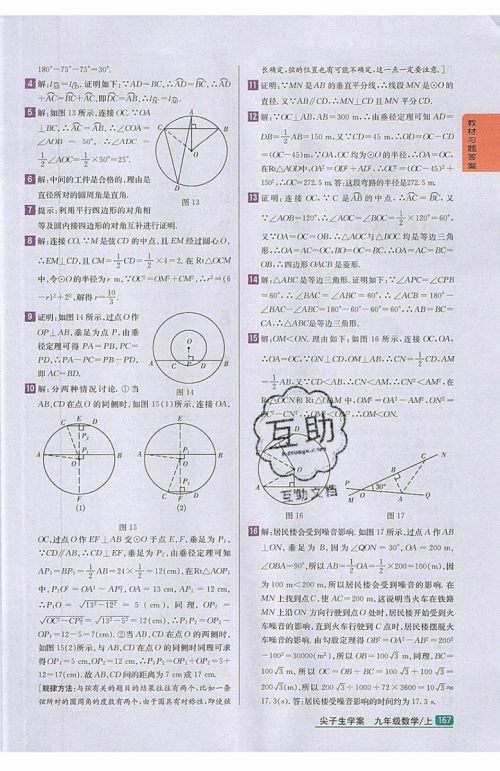 180°-75°-75°=30°.
4 解:l⌢AD=l⌢BC.证明如下:∵AD=BC,∴⌢AD=⌢BC,∴⌢AD
+⌢AC=⌢BC+⌢AC,即⌢DC=⌢AB,∴l⌢DC=l⌢AB.
5 解:如图13所示,连接OC.∵OA
⊥BC,∴⌢AC=⌢AB,∴∠COA=
∠AOB=50°,∴∠ADC=
1/2∠AOC=1/2×50°=25°.
6 解:中间的工件是合格的,理由是
直径所对的圆周角是直角.
图13
7 提示:利用平行四边形的对角相
等及圆内接四边形的对角互补进行证明.
8 解:连接CO.∵M是弦CD的中点,且EM经过圆心O,
∴EM⊥CD,且CM=1/2CD=1/2×4=2.在Rt△OCM
中,令⊙O的半径为r m,∵OC²=OM²+CM²,∴r²=(6
-r)²+2²,解得r=10/3.
9 证明:如图14所示,过点O作
OP⊥AB,垂足为点P,由垂
径定理可得PA=PB,PC=
PD,∴PA-PC=PB-PD,
即AC=BD.
图14
10 解:分两种情况讨论.①当
AB,CD在点O的同侧时,如图15(1)所示,连接OA,
(1)
(2)
图15
OC,过点O作EF⊥AB交⊙O于点E,F,垂足为P₁,
∵CD//AB,∴CD⊥EF,垂足为P₂,由垂径定理可知
AP₁=BP₁=1/2AB=24×1/2=12(cm),在Rt△AOP₁
中,P₁O²=OA²-AP₁²,OA=13 cm,AP₁=12 cm,
∴P₁O=√(13²-12²)=5(cm),同理,OP₂=
√(OC²-CP₂²)=√(13²-5²)=12(cm),∴P₁P₂=OP₂-
OP₁=12-5=7(cm).②当AB,CD在点O的两侧时,
如图15(2)所示,与AB,CD在点O的同侧时同理可求
得OP₁=5 cm,OP₂=12 cm,∴P₁P₂=OP₁+OP₂=5+
12=17(cm).故AB,CD间的距离为7 cm或17 cm.
[规律方法:与弦有关的题目的结果往往有两个,比如一条
弦所对的圆周角的度数有两个,由于圆具有对称性,即使弦
长确定,弦的位置也有可能不确定,这一点一定要注意.]
11 证明:∵MN是AB的垂直平分线,∴线段MN是⊙O的
直径.又∵AB//CD,∴MN⊥CD且MN平分CD.
12 解:∵OC⊥AB,AB=300 m,∴由垂径定理可知AD=
DB=1/2AB=150 m.又∵CD=45 m,∴OD=OC-CD
=(OC-45)m.∵OA,OC均为⊙O的半径,∴OA=OC,
在Rt△AOD中,OA²=OD²+AD²,∴OC²=(OC-45)²+
150²,∴OC=272.5 m.答:这段弯路的半径是272.5 m.
13 证明:连接OC,∵C是⌢AB的中点,∴⌢AC=⌢BC.又
∵∠AOB=120°,∴∠AOC=∠BOC=1/2×120°=60°.
又∵OA=OC=OB,∴△AOC与△BOC均是等边三角
形,∴OA=AC=OC,BO=OC=BC,∴OA=AC=BC=
OB,∴四边形OACB是菱形.
14 解:△ABC是等边三角形.证明如下:∵∠APC=∠CPB
=60°,∴∠BAC=∠ABC=60°,∴∠ACB=180°-
∠BAC-∠ABC=180°-60°-60°=60°,∴AB=BC=
CA,∴△ABC是等边三角形.
15 解:OM<ON.理由如下,如图16所示,连接OC,OA,
∴OA=OC,∵ON⊥CD,OM⊥AB,∴CN=1/2CD,AM
=1/2AB,又∵CD<AB,∴CN<AM,∴CN²<AM²,在
Rt△OCN和Rt△OAM中,OM²=OA²-AM²,ON²=
OC²-CN²,∴OM²<ON²,∴OM<ON.
互助
互助文档
图16
图17
16 解:居民楼会受到噪音影响.如图17所示,过点A作AB
⊥ON,垂足为B,因为∠QON=30°,OA=200 m,
∠OBA=90°,所以AB=1/2OA=1/2×200=100(m),因
为100 m<200 m,所以居民楼会受到噪音的影响.在
MN上找到点C,使AC=200 m,这说明当火车在铁路
MN上沿ON方向行驶到点O处时,居民楼开始受到火
车噪音的影响,直到火车行驶到C点时,居民楼摆脱火
车噪音的影响.由勾股定理得OB²=OA²-AB²=200²
-100²=30000(m²),所以OB=100√3 m,同理,BC=
100√3 m,所以OC=OB+BC=100√3+100√3=
200√3(m),所以200√3÷1000÷72×3600=10√3≈
17.3(s).答:居民楼受噪音影响的时间约为17.3 s.
教材习题答案
尖子生学案 九年级数学/上 167